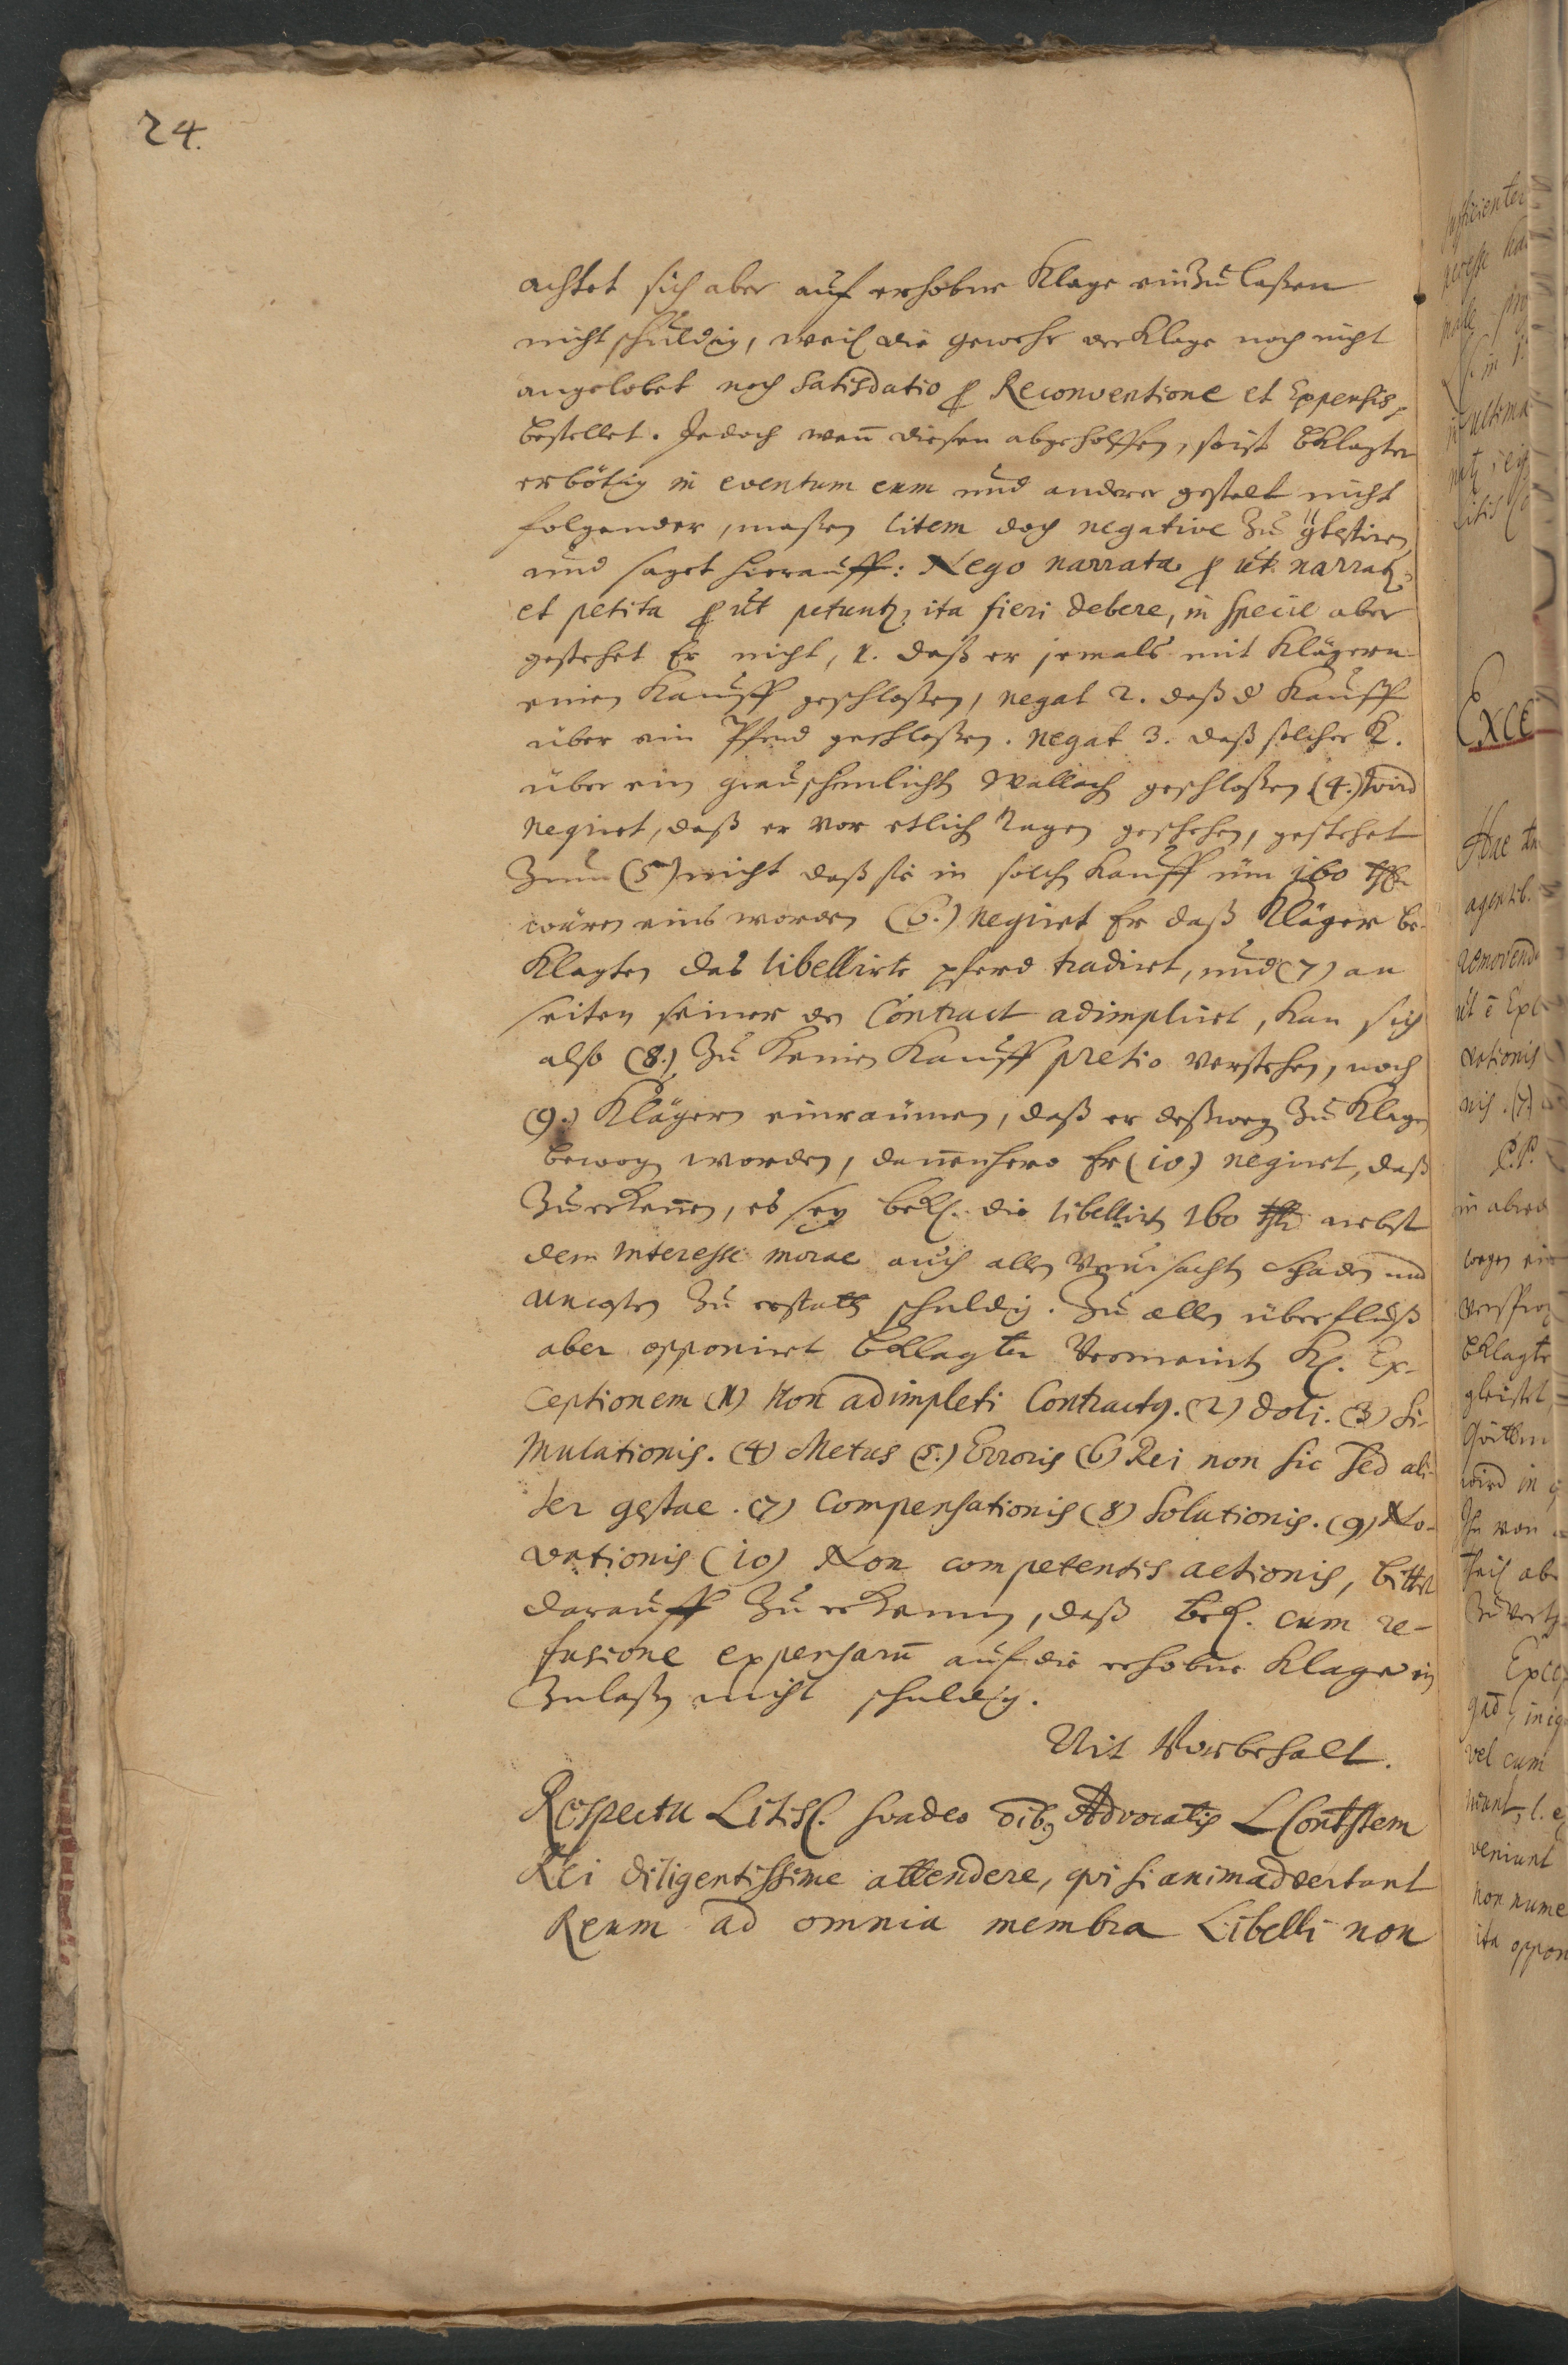 24.
achtet sich aber auf erhobne Klage einzulaßen
nicht schuldig, weil die gewehr der Klage noch nicht
angelobet noch Satisdatio p Reconventione et Expensis
bestellet. Jedoch wen̄ diesen abgeholffen, so ist bKlagter
erbötig in eventum eum und anderer gestalt nicht
folgender, maßen litem doch negative zu
und saget hierauff: Nego narrata p ut narrat
et petita p ut petunt, ita fieri debere, in specie aber
gestehet Er nicht, 1. daß er jemals mit Klägern
einen Kauff geschloßen, negat 2. daß d Kauff
über ein Pferd geschloßen. negat 3. daß solcher K.
über ein Wallach geschloßen (4.) wird
negiret, daß er vor etlich Tagen geschehen, gestehet
Zum (5) nicht daß sie in solch Kauff üm 160 thl.
wären eins worden (6.) negiret Er daß Kläger be-
Klagten das libellirte pferd tradiret, und (7) an
seiten seiner den Contract adimpliret, kan sich
also (8.) zu keinen Kauff pretio verstehen, noch
(9.) Klägern einraumen, daß er deßweg zu Klagen
bewogen worden, dan̄enhero Er (10) negiret, daß
zu erken̄en, es sey bekl. die libellirten 160 thl. nebst
dem interesse morae auch allen verursachten Schaden und
uncosten zu erstatten schuldig. Zu allen überfluß
aber opponiret bKlagter Vermeinten Kl. Ex-
ceptionem (1) Non adimpleti Contractus. (2) doli. (3) Si-
mulationis. (4) Metus (5.) Erroris (6) Rei non sic sed ali-
ter gestae. (7) Compensationis (8) Solutionis. (9) No-
vationis (10) Non competentis actionis, bittet
darauff zu erkennen, daß bekl. cum re-
fusione expensarū auf die erhobne Klage ein
zulaßen nicht schuldig.
Mit Vorbehalt.
Respectu Litisc. svadeo oib9 Advocatis LContstem
Rei diligentissime attendere, qvi si animadvertant
Reum ad omnia membra Libelli non
Exce